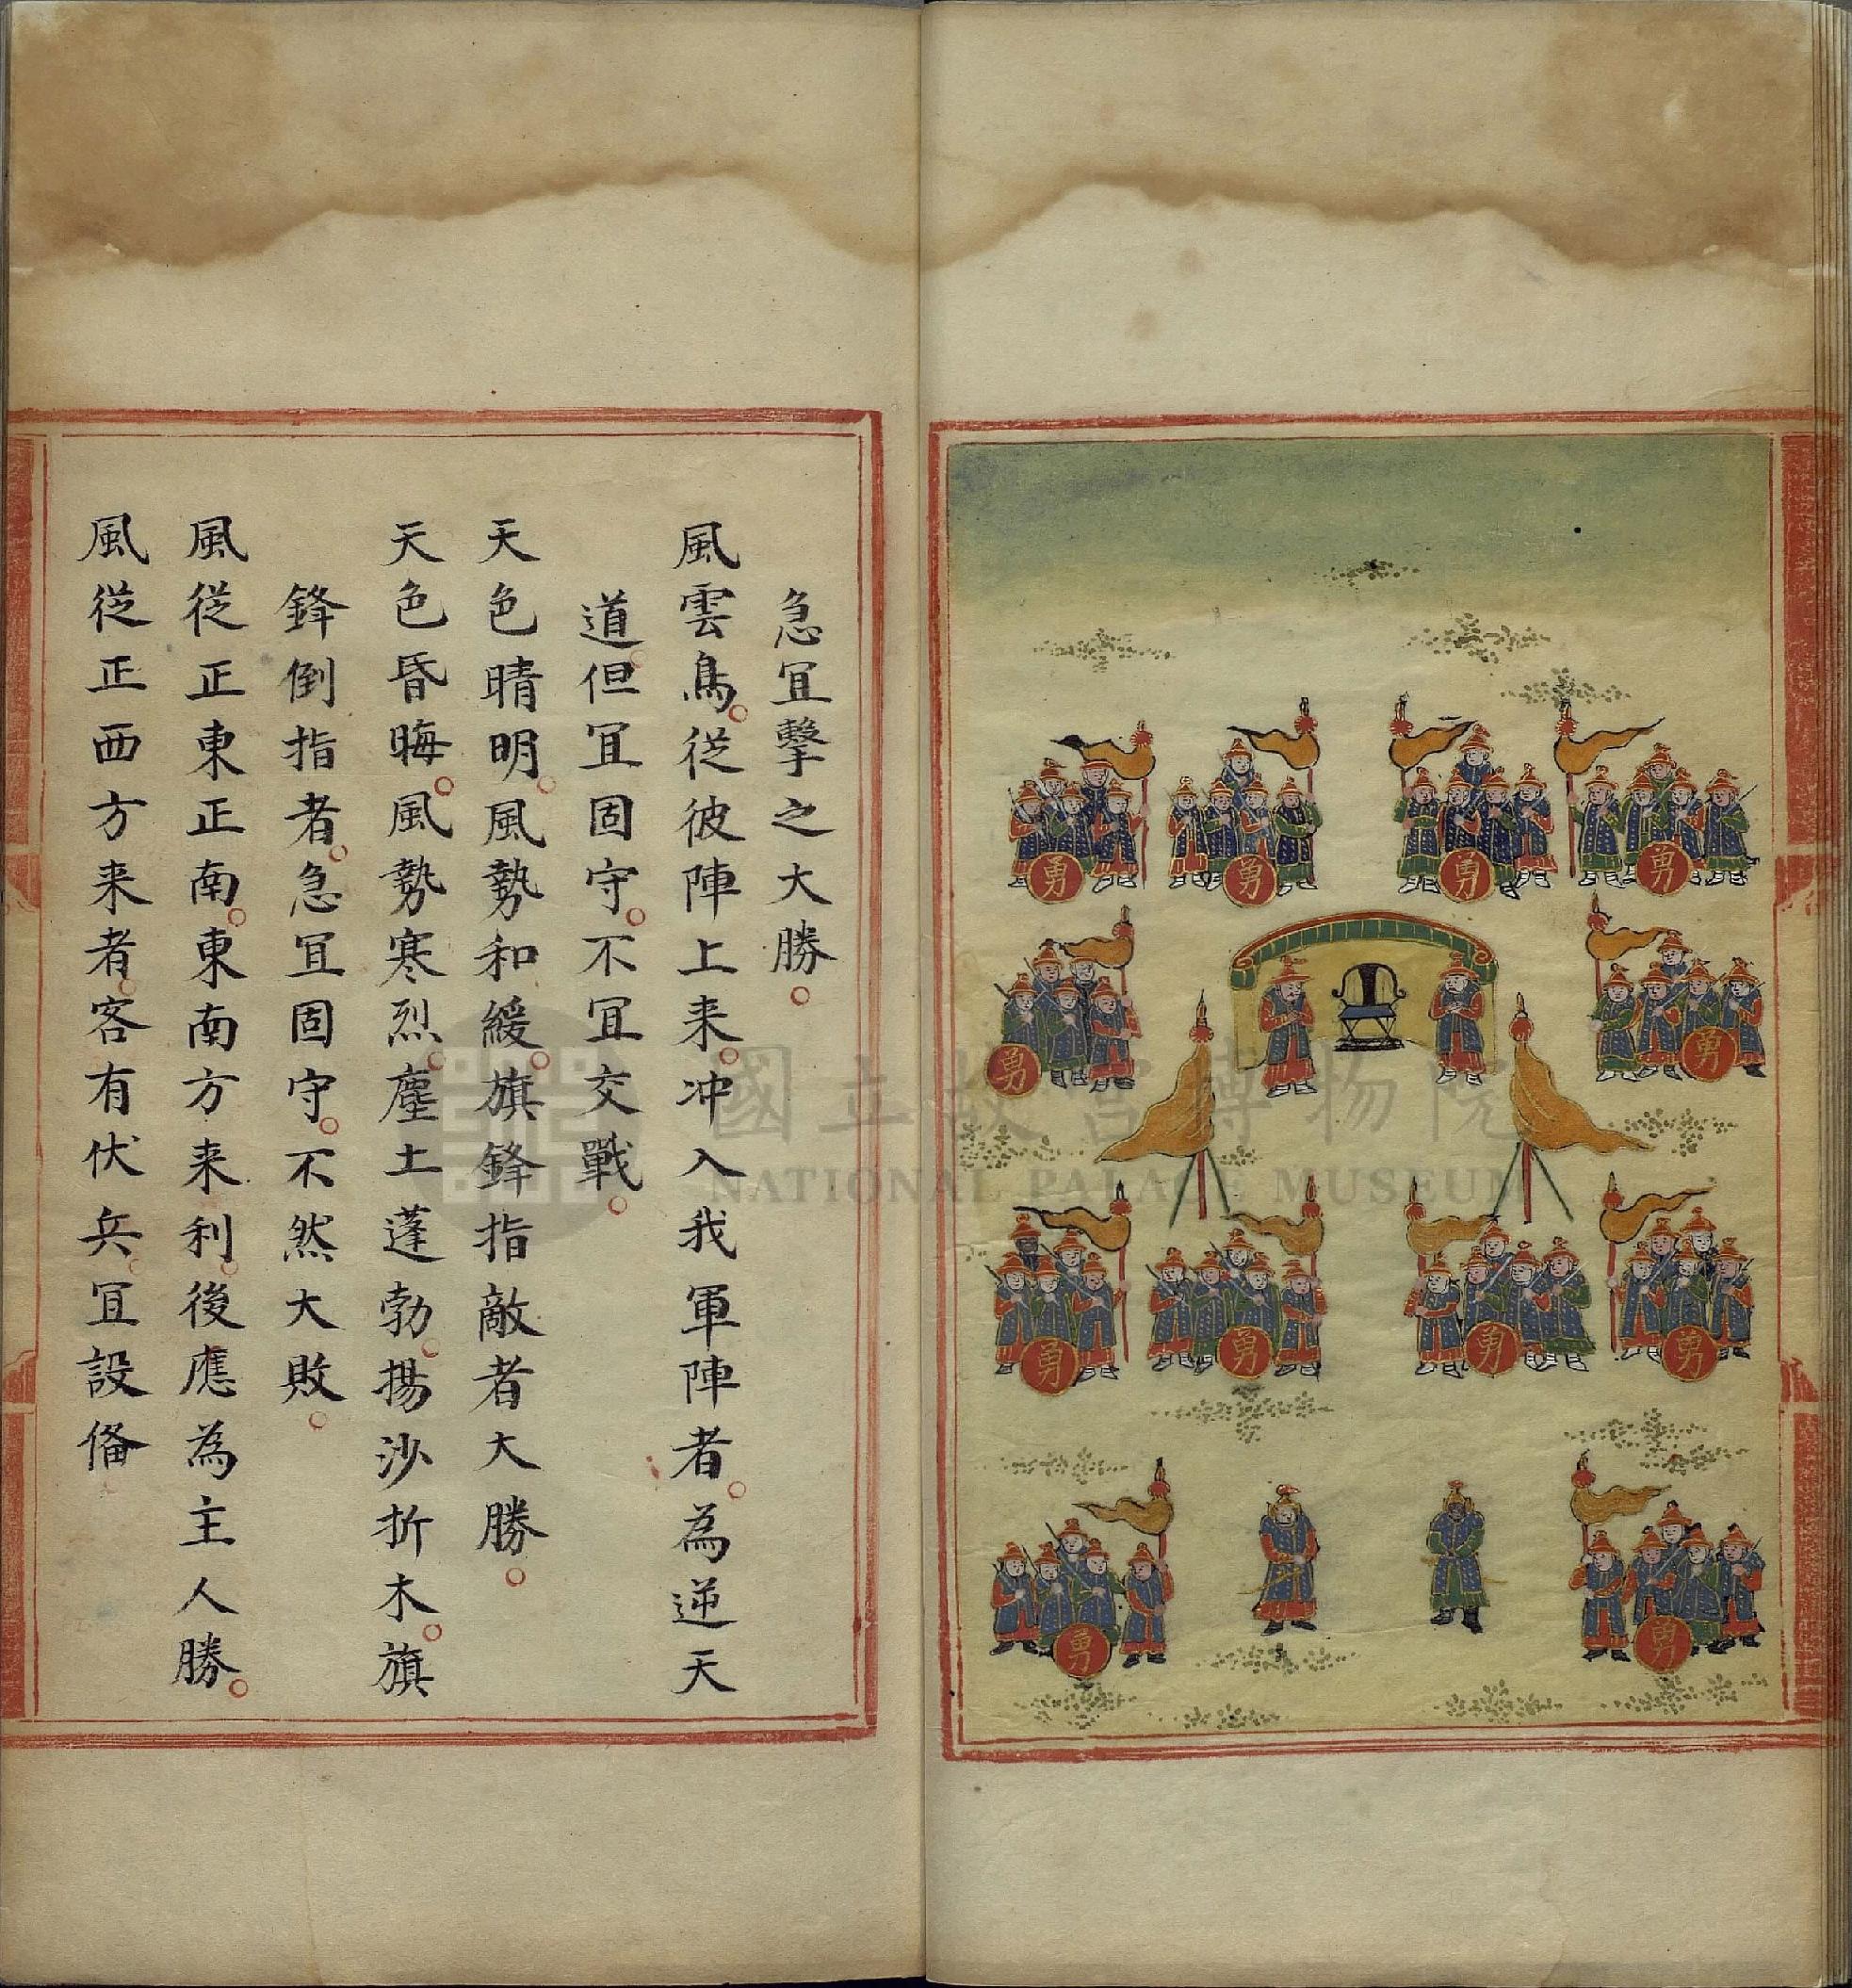 急冝擊之大勝。
風雲鳥。從彼陣上来。冲入我軍陣者。為逆天
道但冝固守。不冝交戰。
天色晴明。風勢和緩。旗鋒指敵者大勝。
天色昏晦。風勢寒烈。塵土蓬勃。揚沙折木。旗
鋒倒指者。急冝固守。不然大敗。
風從正東正南。東南方来利。後應為主人勝。
風從正西方来者。客有伏兵。冝設偹
勇
勇
勇
勇
勇
勇
勇
勇
勇
勇
勇
勇
國立故宮博物院
NATIONAL PALACE MUSEUM